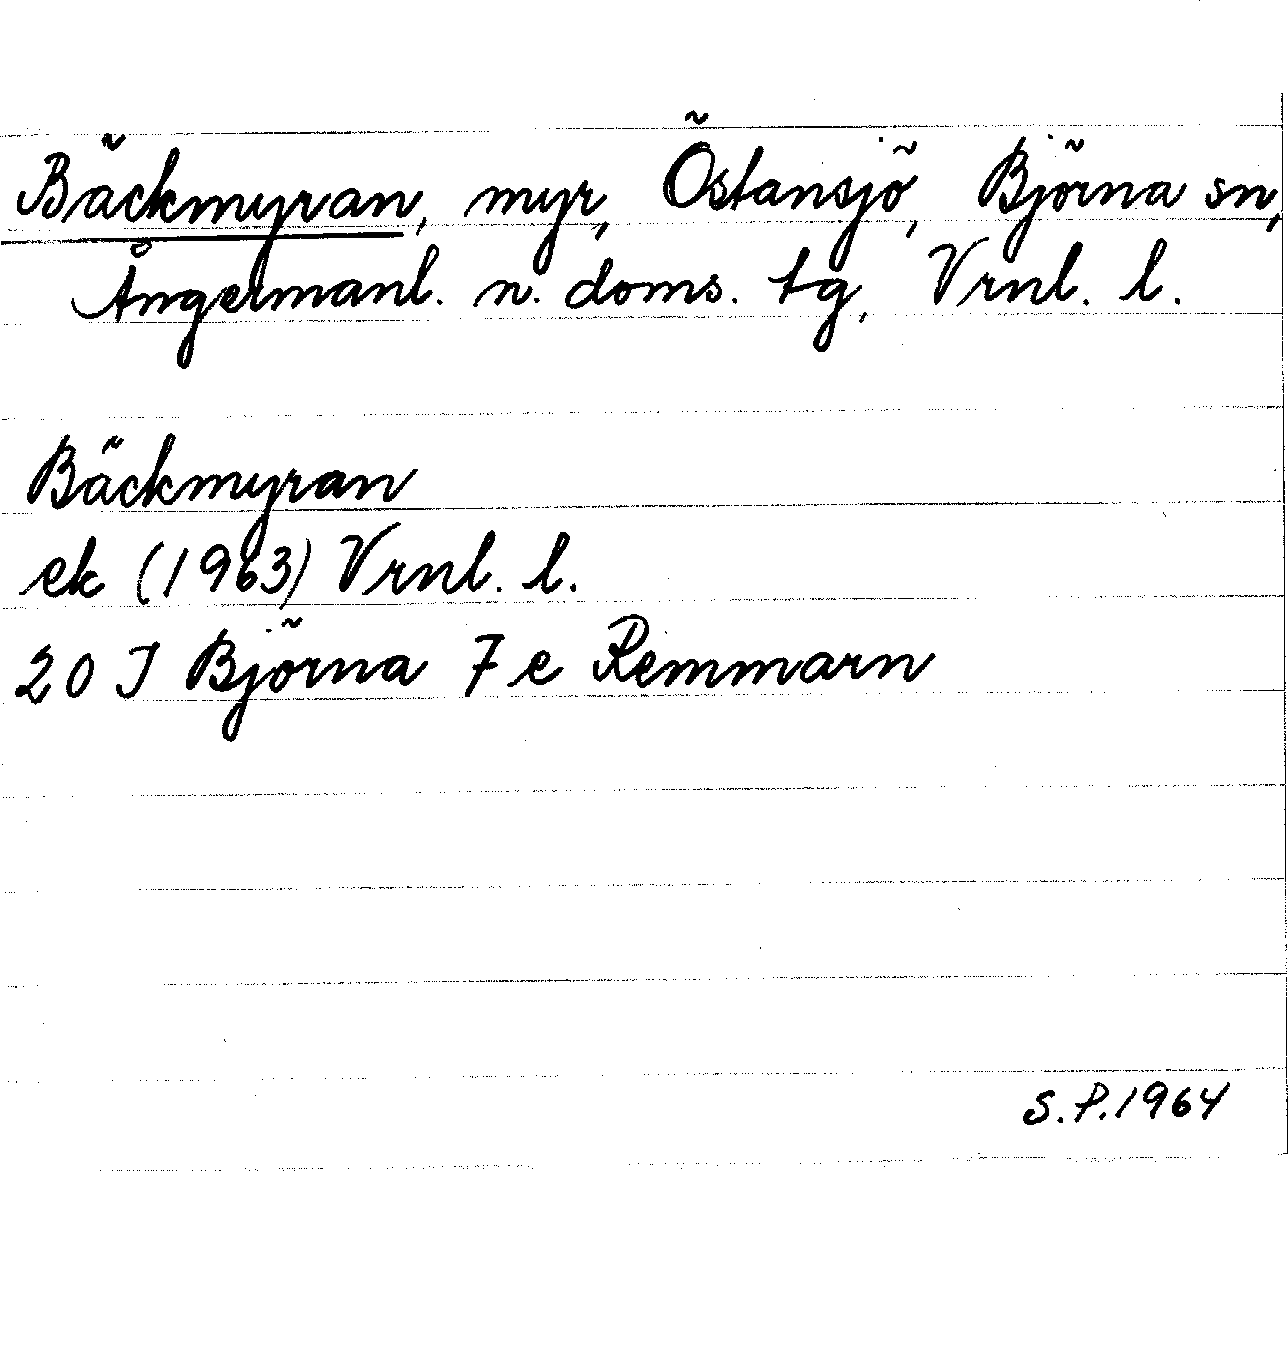 Bäckmyran, myr, Östansjö, Björna sn,
Ångermanl. n. doms. tg, Vrnl. l.
Bäckmyran
ek (1963) Vrnl. l.
20 J Björna 7 e Remmarn
S.P. 1964